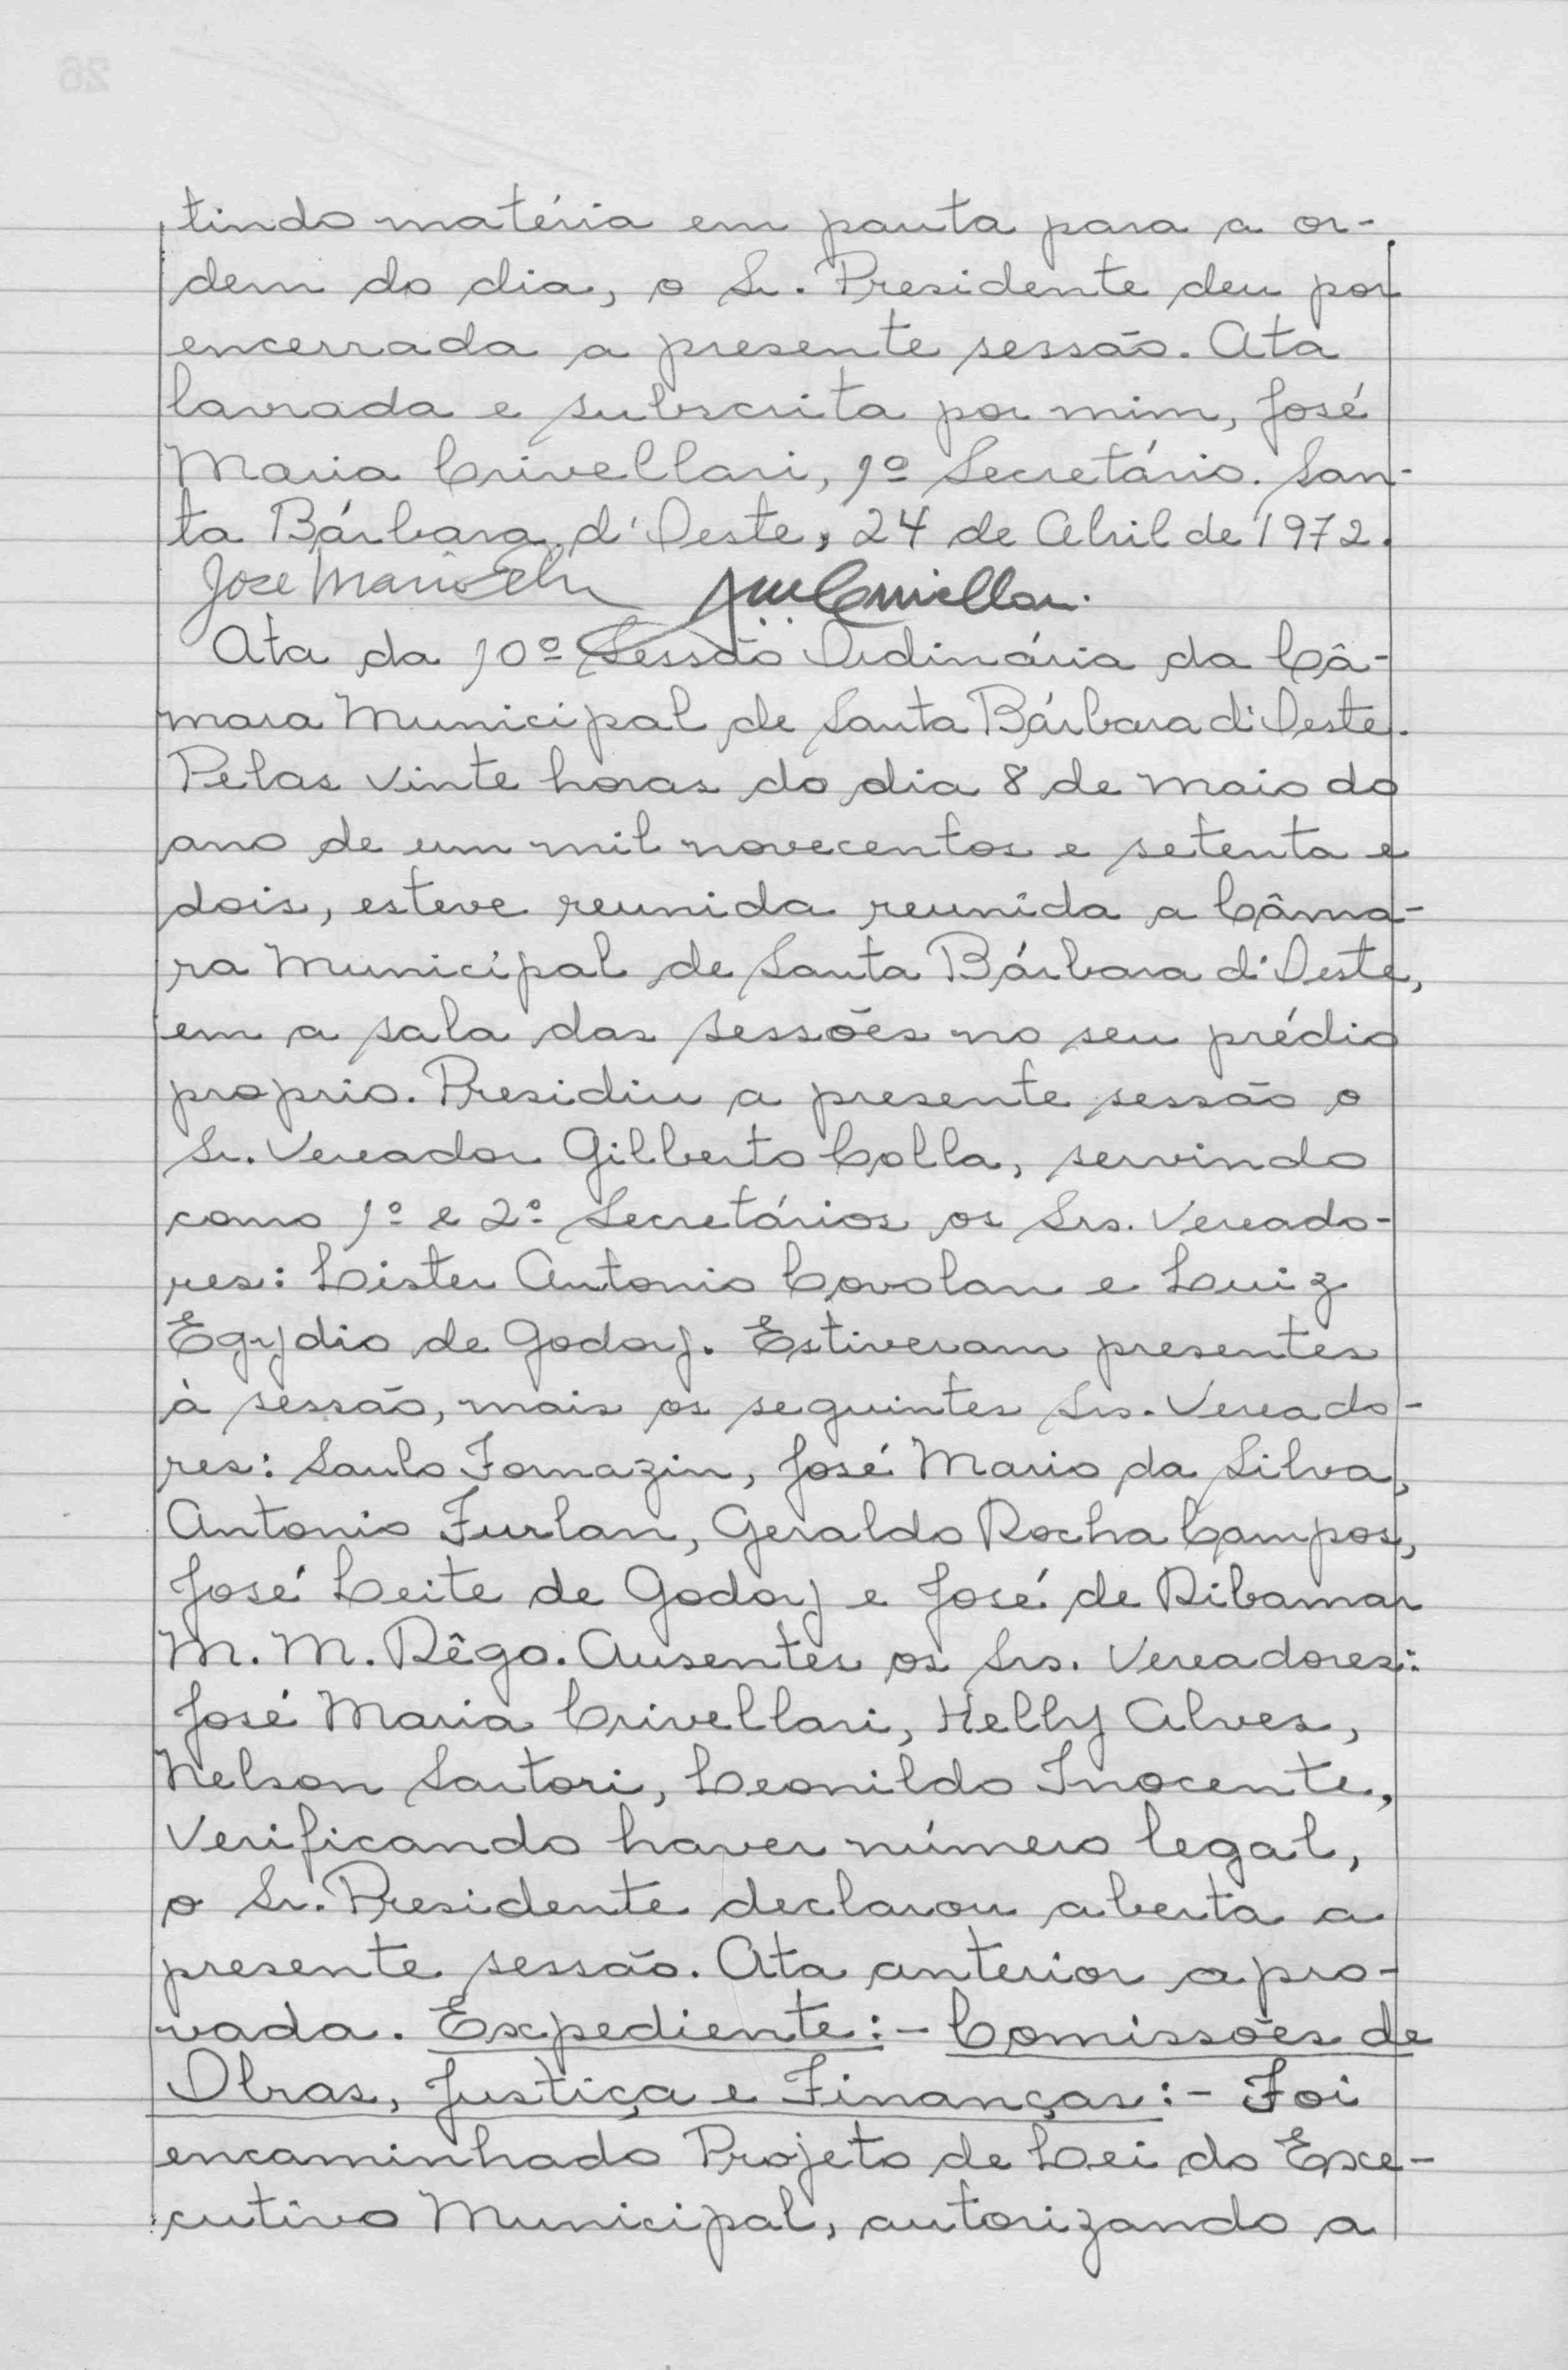 tindo matéria em pauta para a or-
dem do dia, o Sr. Presidente deu por
encerrada a presente sessão. Ata
lavrada e subscrita por mim, José
Maria Crivellari, 1º Secretário. San-
ta Bárbara d'Oeste, 24 de Abril de 1972.
José Mario
Ata da 10º Sessão Ordinária da Câ-
mara Municipal de Santa Bárbara d'Oeste.
Pelas vinte horas do dia 8 de maio do
ano de um mil novecentos e setenta e
dois, esteve reunida reunida a Câma-
ra Municipal de Santa Bárbara d'Oeste,
em a sala das sessões no seu prédio
proprio. Presidiu a presente sessão o
Sr. Vereador Gilberto Colla, servindo
como 1º e 2º Secretários os Srs. Vereado-
res: Lister Antonio Covolan e Luiz
Egydio de Godoy. Estiveram presentes
à sessão, mais os seguintes Srs. Vereado-
res: Saulo Fornazin, José Mario da Silva,
Antonio Furlan, Geraldo Rocha Campos,
José Leite de Godoy e José de Ribamar
M. M. Rêgo. Ausentes os Srs. Vereadores:
José Maria Crivellari, Helly Alves,
Nelson Sartori, Leonildo Inocente,
Verificando haver número legal,
o Sr. Presidente declarou aberta a
presente sessão. Ata anterior apro-
vada. Expediente:- Comissões de
Obras, Justiça e Finanças:- Foi
encaminhado Projeto de Lei do Exe-
cutivo Municipal, autorizando a